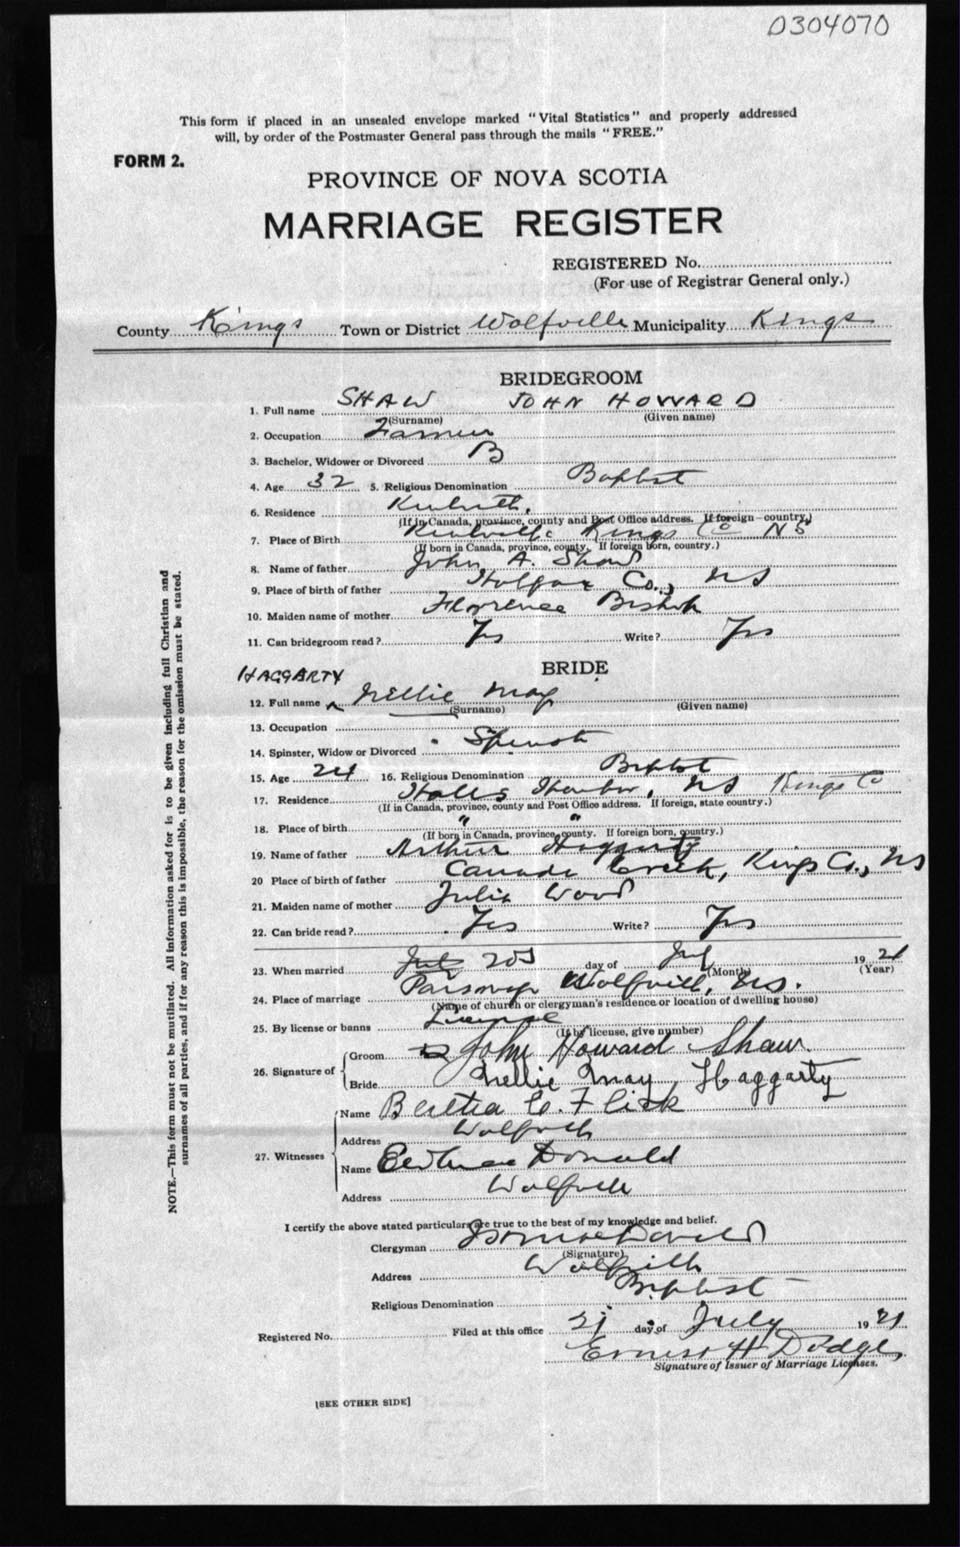 0304070
This form if placed in an unsealed envelope marked "Vital Statistics" and properly addressed
will, by order of the Postmaster General pass through the mails "FREE."
FORM 2.
PROVINCE OF NOVA SCOTIA
MARRIAGE REGISTER
REGISTERED No.
(For use of Registrar General only.)
County Kings Town or District Wolfville Municipality Kings
BRIDEGROOM
1. Full name SHAW JOHN HOWARD
(Surname) (Given name)
2. Occupation Farmer
3. Bachelor, Widower or Divorced B
4. Age 32 5. Religious Denomination Baptist
6. Residence
(If in Canada, province, county and Post Office address. If foreign country,)
7. Place of Birth Kings Co NS
(If born in Canada, province, county. If foreign born, country.)
8. Name of father John A. Shaw
9. Place of birth of father Halfax Co., NS
10. Maiden name of mother Florence Bishop
11. Can bridegroom read? Yes Write? Yes
BRIDE
HAGGARTY
12. Full name Nellie May
(Surname) (Given name)
13. Occupation
14. Spinster, Widow or Divorced Spinst
15. Age 24 16. Religious Denomination Baptist
17. Residence Halls Harbor, NS Kings Co
(If in Canada, province, county and Post Office address. If foreign, state country.)
18. Place of birth " "
(If born in Canada, province, county. If foreign born, country.)
19. Name of father Arthur Haggarty
20 Place of birth of father Canada Creek, Kings Co., NS
21. Maiden name of mother Julia Wood
22. Can bride read? Yes Write? Yes
23. When married July 20 day of July 1921
(Month) (Year)
24. Place of marriage Parsonage Wolfville, NS.
(Name of church or clergyman's residence or location of dwelling house)
25. By license or banns License
(If by license, give number)
26. Signature of
Groom John Howard Shaw
Bride Nellie May Haggarty
27. Witnesses
Name Bertha
Address Wolfville
Name Donald
Address Wolfville
I certify the above stated particulars are true to the best of my knowledge and belief.
Clergyman
(Signature)
Address Wolfville
Religious Denomination Baptist
Registered No. Filed at this office 21 day of July 1921
Ernest H Dodge
Signature of Issuer of Marriage Licenses.
[SEE OTHER SIDE]
NOTE.—This form must not be mutilated. All information asked for is to be given including full Christian and
surnames of all parties, and if for any reason this is impossible, the reason for the omission must be stated.